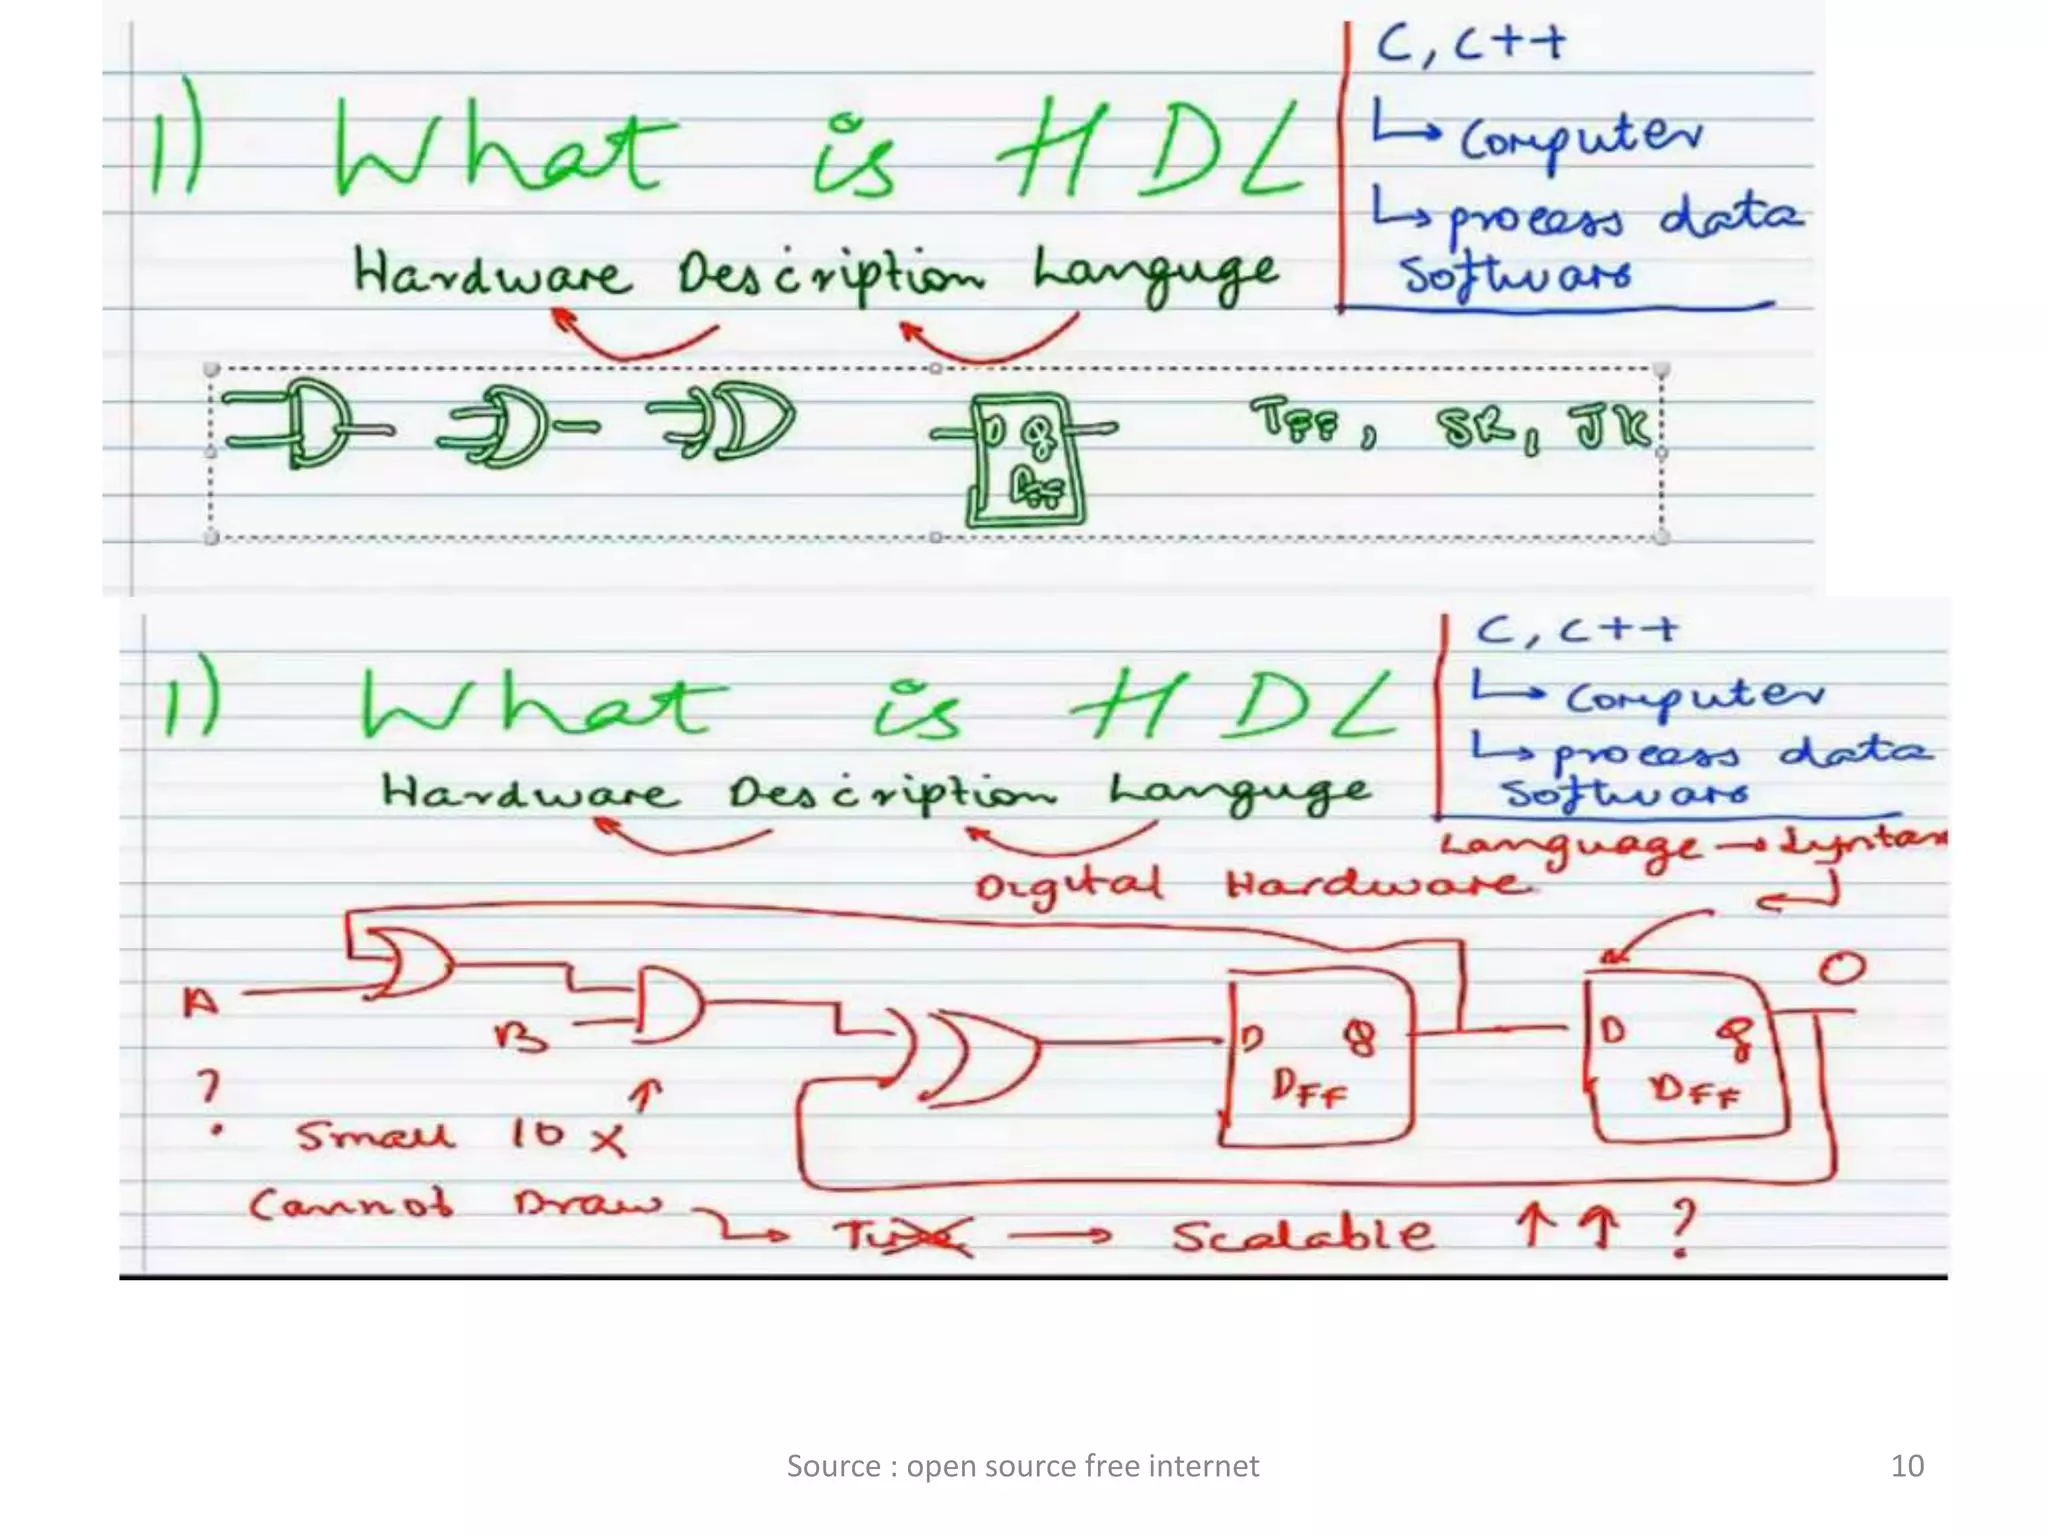 C, C++
1) What is HDL
↳ Computer
↳ process data
Software
Hardware Description Languge
D Q
DFF
TFF, SR, JK
C, C++
1) What is HDL
↳ Computer
↳ process data
Software
Hardware Description Languge
Language → Syntax
Digital Hardware
A
B
D Q
DFF
D Q
DFF
O
?
Small 10 X ↑
Cannot Draw → Time → Scalable ↑↑ ?
Source : open source free internet
10